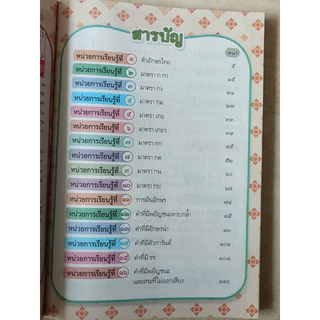 สารบัญ
หน้า
หน่วยการเรียนรู้ที่ ๑ ตัวอักษรไทย ๕
หน่วยการเรียนรู้ที่ ๒ มาตรา ก กา ๑๕
หน่วยการเรียนรู้ที่ ๓ มาตรา กง ๒๑
หน่วยการเรียนรู้ที่ ๔ มาตรา กม ๒๗
หน่วยการเรียนรู้ที่ ๕ มาตรา เกย ๓๓
หน่วยการเรียนรู้ที่ ๖ มาตรา เกอว ๓๘
หน่วยการเรียนรู้ที่ ๗ มาตรา กก
หน่วยการเรียนรู้ที่ ๘ มาตรา กด
หน่วยการเรียนรู้ที่ ๙ มาตรา กน
หน่วยการเรียนรู้ที่ ๑๐ มาตรา กบ
หน่วยการเรียนรู้ที่ ๑๑ การผันอักษร ๗๔
หน่วยการเรียนรู้ที่ ๑๒ คำที่มีพยัญชนะควบกล้ำ ๘๕
หน่วยการเรียนรู้ที่ ๑๓ คำที่มีอักษรนำ
หน่วยการเรียนรู้ที่ ๑๔ คำที่มีตัวการันต์ ๑๐๑
หน่วยการเรียนรู้ที่ ๑๕ คำที่มี รร ๑๐๘
หน่วยการเรียนรู้ที่ ๑๖ คำที่มีพยัญชนะ
และสระที่ไม่ออกเสียง